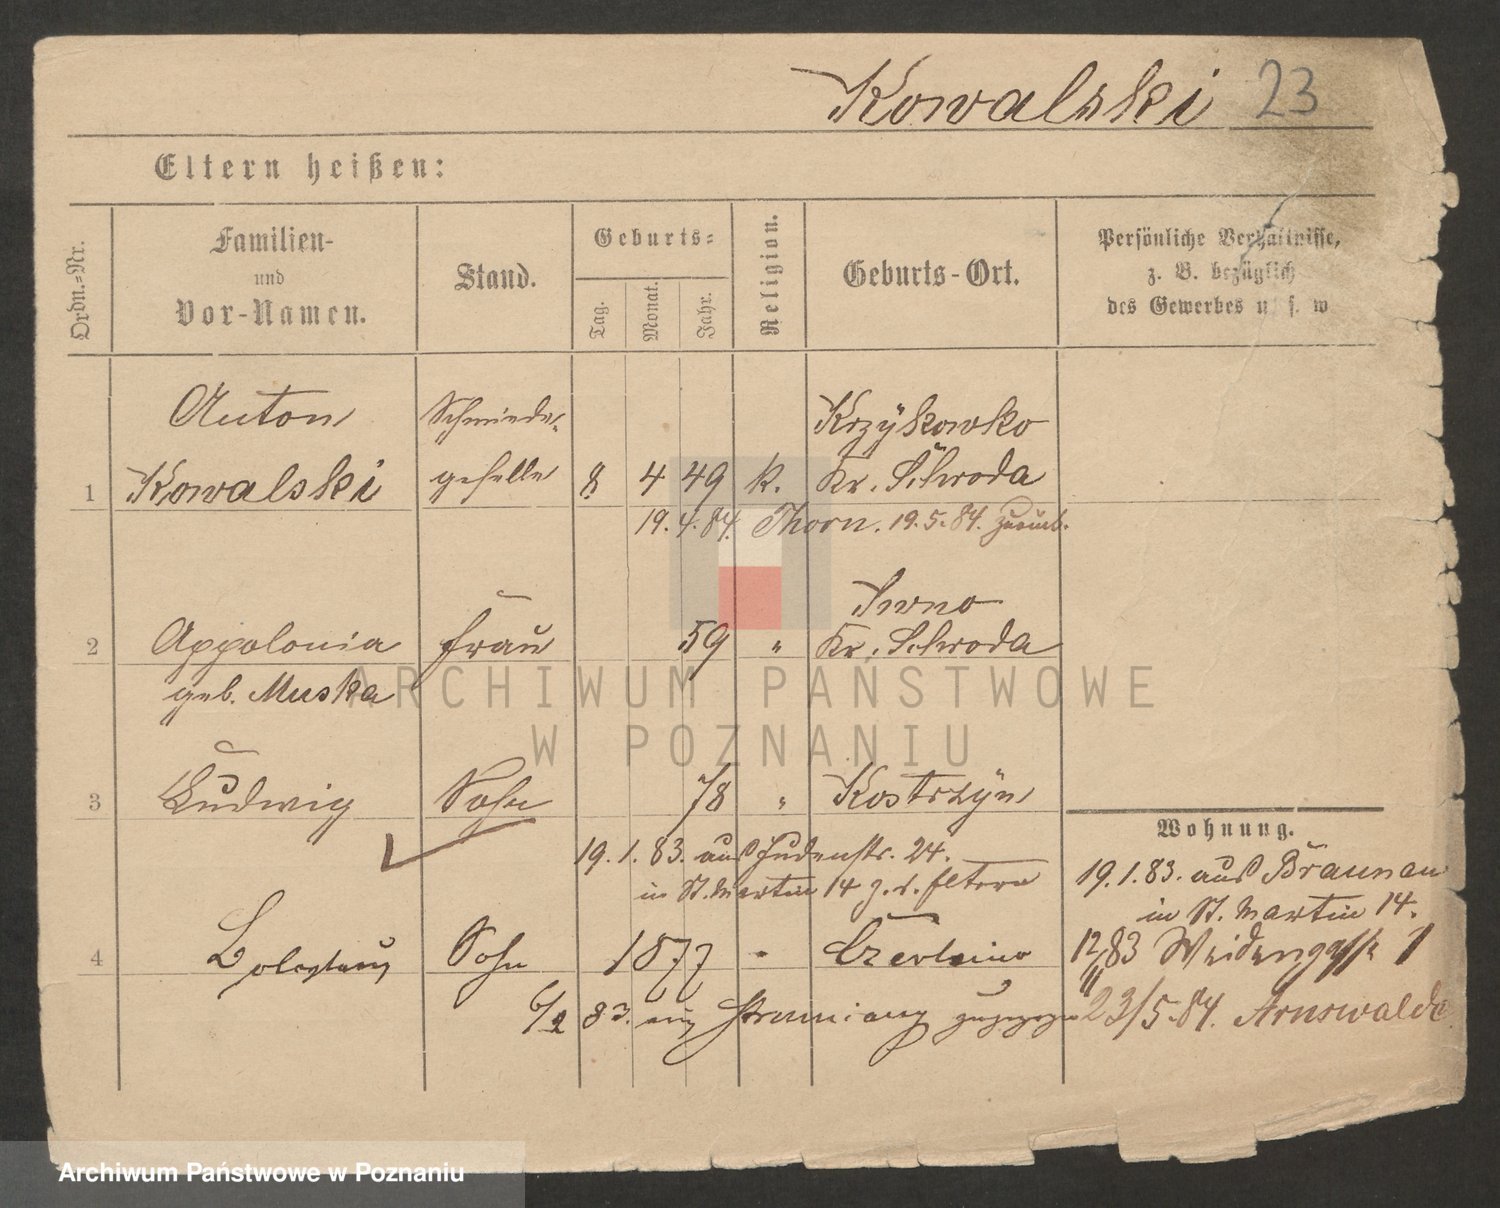 Kowalski 23
Eltern heißen:
Ordn.-Nr.
Familien-
und
Vor-Namen.
Stand.
Geburts-
Tag.
Monat.
Jahr.
Religion.
Geburts-Ort.
Persönliche Verhältnisse,
z. B. bezüglich
des Gewerbes u. s. w.
Anton Schmiede- Krzykowko
1 Kowalski geselle 8 4 49 k. Kr. Schroda
19.4.84. Thorn. 19.5.84. zurück.
Iwno
2 Appolonia Frau 59 " Kr. Schroda
geb. Muska
3 Ludwig Sohn 78 " Kostrzyn
Wohnung.
19.1.83. aus Judenstr. 24.
in St. Martin 14 z. d. Eltern
19.1.83. aus Braunau
in St. Martin 14.
4 Boleslaus Sohn 1877 " 12/83 Weidengasse 1
6/2 83. aus zugezogen
23/5.84. Arnswalde
ARCHIWUM PAŃSTWOWE
W POZNANIU
Archiwum Państwowe w Poznaniu